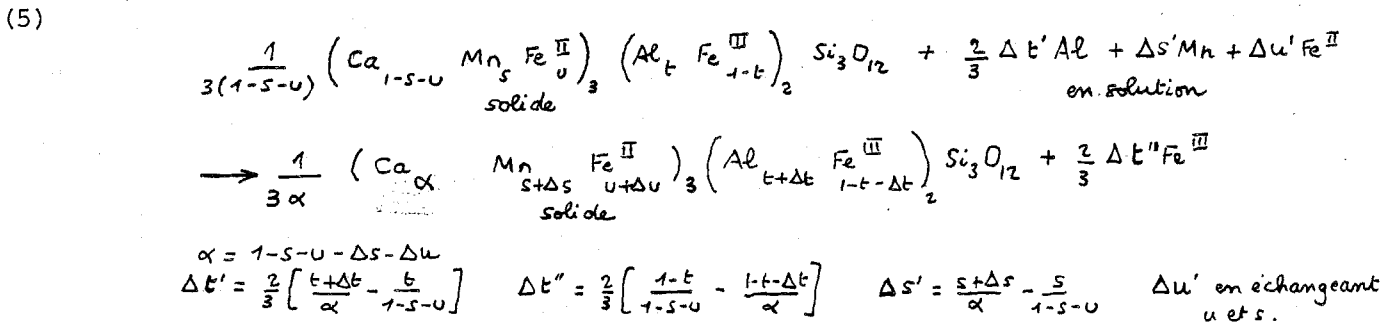 (5)
1/3(1-s-u) (Ca_{1-s-u} Mn_s Fe^{II}_u)_3 (Al_t Fe^{III}_{1-t})_2 Si_3O_{12} + 2/3 Δt'Al + Δs'Mn + Δu'Fe^{II}
solide en solution
→ 1/3α (Ca_α Mn_{s+Δs} Fe^{II}_{u+Δu})_3 (Al_{t+Δt} Fe^{III}_{1-t-Δt})_2 Si_3O_{12} + 2/3 Δt"Fe^{III}
solide
α = 1-s-u-Δs-Δu
Δt' = 2/3 [t+Δt/α - t/1-s-u] Δt" = 2/3 [1-t/1-s-u - 1-t-Δt/α] Δs' = s+Δs/α - s/1-s-u Δu' en échangeant
u et s.